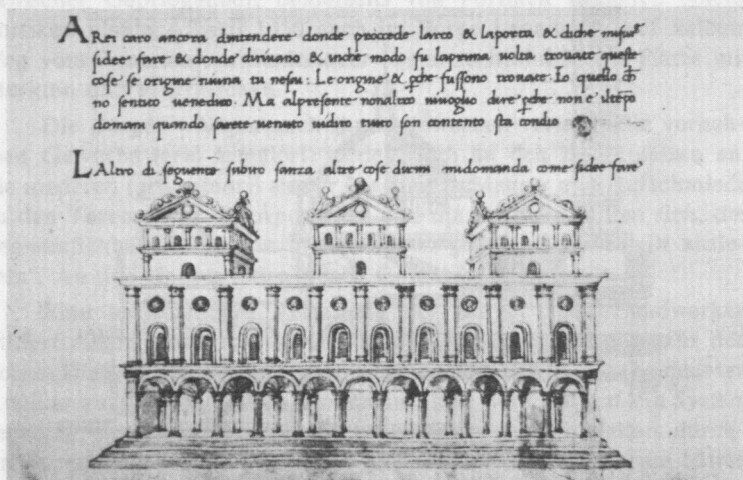 A Rei caro ancora dintendere donde procede larco & laporta & diche misur
sidee fare & donde dirivano & inche modo fu laprima volta trovate queste
cose se origine niuna tu nesai: Le origine & pche fussono trovate. Io quello ch
no sentuto venedico. Ma alpresente nonaltro mivoglio dire pche non e iltepo
domani quando sarete venuto vidiro tutto son contento sta condio
LAltro di seguente subito sanza altre cose dirmi midomanda come sidee fare